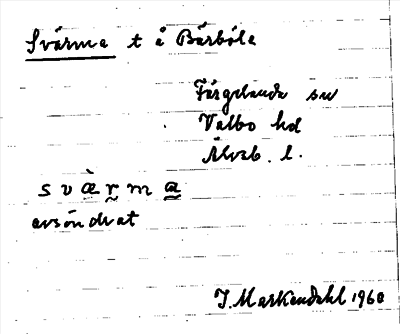 Svärma t å Bärböle
Färgelanda sn
Valbo hd
Älvsb. l.
s v æ̀ r̰ m a̰
avsöndrat
I. Markendahl 1960